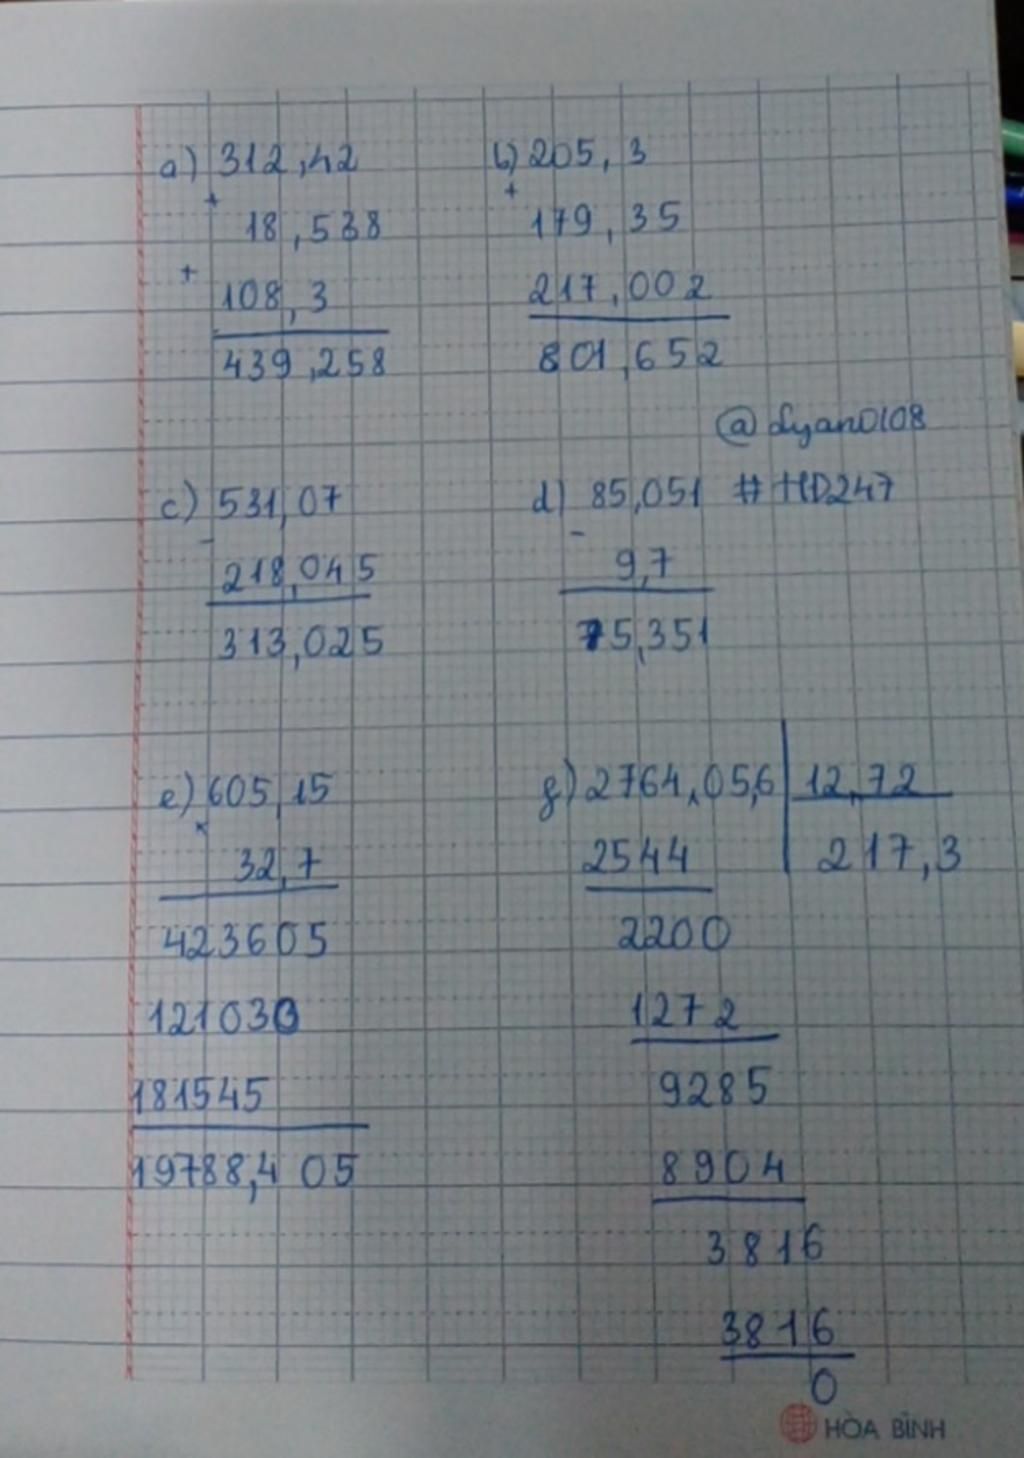 a) 312,42
+
18,538
+
108,3
439,258
b) 205,3
+
179,35
217,002
801,652
@Lyan0108
#HD247
c) 531,07
-
218,045
313,025
d) 85,051
-
9,7
75,351
e) 605,15
×
32,7
423605
121030
181545
19788,405
g) 2764,05,6 | 12,72
2544
217,3
2200
1272
9285
8904
3816
3816
0
HÒA BÌNH